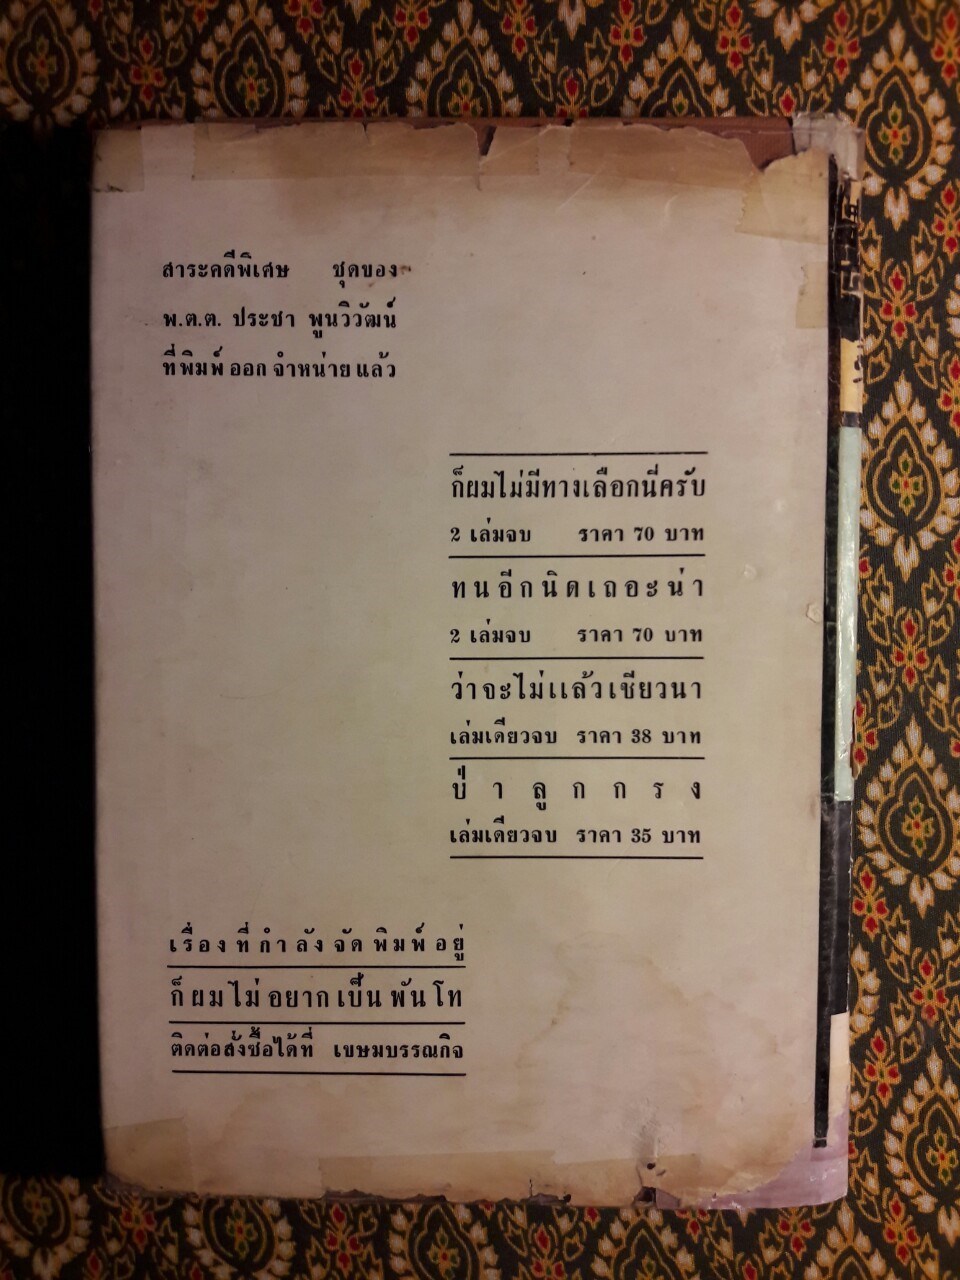 สาระคดีพิเศษ ชุดของ
พ.ต.ต. ประชา พูนวิวัฒน์
ที่พิมพ์ออกจำหน่ายแล้ว
ก็ผมไม่มีทางเลือกนี่ครับ
2 เล่มจบ ราคา 70 บาท
ทนอีกนิดเถอะน่า
2 เล่มจบ ราคา 70 บาท
ว่าจะไม่แล้วเชียวนา
เล่มเดียวจบ ราคา 38 บาท
ป่าลูกกรง
เล่มเดียวจบ ราคา 35 บาท
เรื่องที่กำลังจัดพิมพ์อยู่
ก็ผมไม่อยากเป็นพันโท
ติดต่อสั่งซื้อได้ที่ เขษมบรรณกิจ